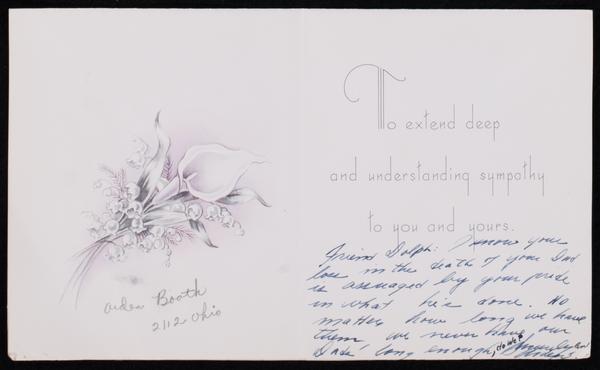 Arden Booth
2112 Ohio
To extend deep
and understanding sympathy
to you and yours.
Friend Dolph: I know your
loss in the death of your Dad
is assuaged by your pride
in what he's done. No
matter how long we have
them, we never have our
Dads' long enough, do we?
Sincerely